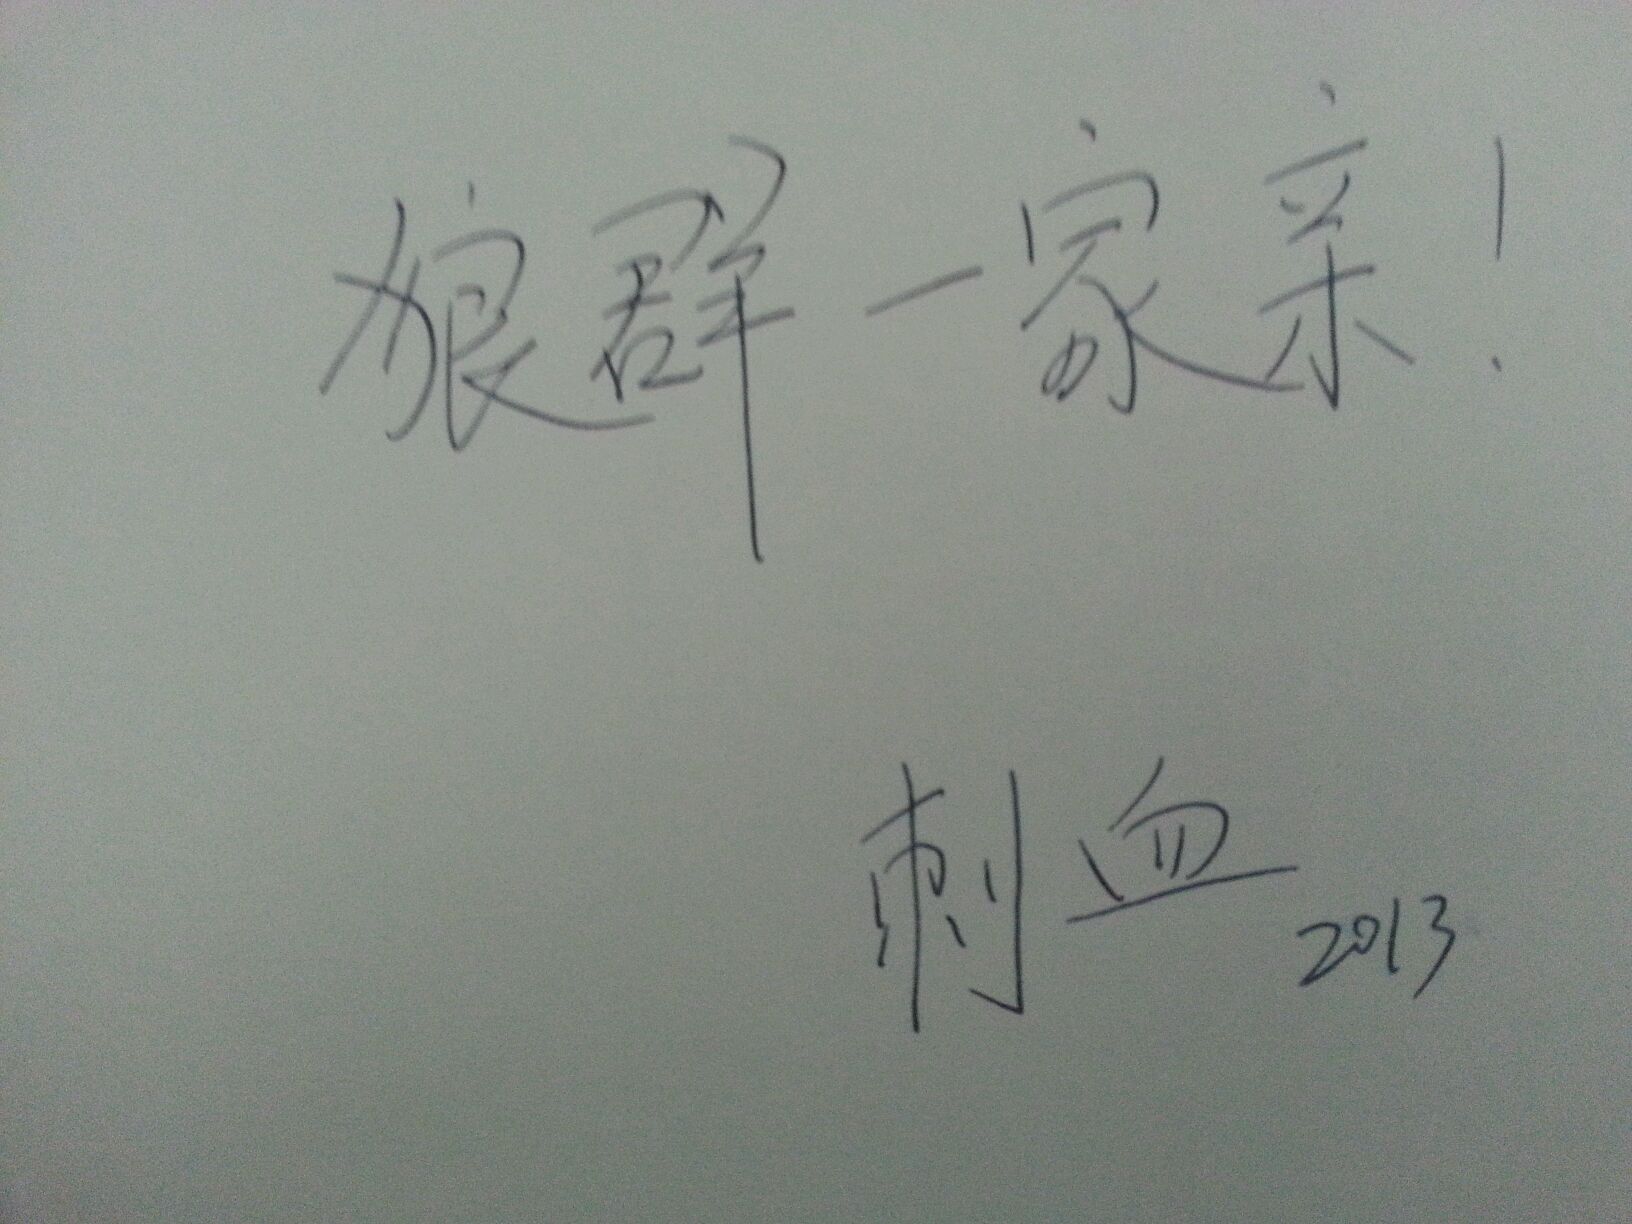 狼群一家亲！
刺血 2013